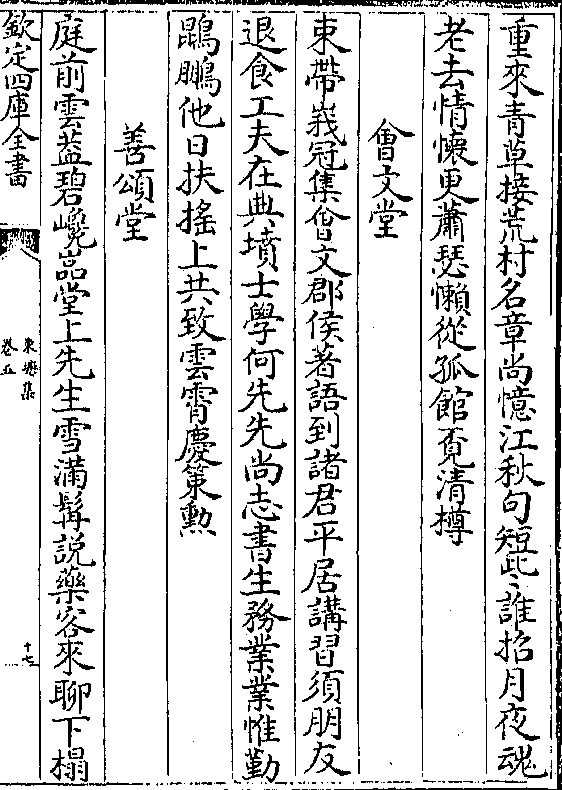 重來青草接荒村名章尚憶江秋句短些誰招月夜魂
老去情懷更蕭瑟懶從孤館覓清樽
會文堂
束帶峩冠集會文郡侯著語到諸君平居講習須朋友
退食工夫在典墳士學何先先尚志書生務業業惟勤
鵾鵬他日扶搖上共致雲霄慶策勲
善頌堂
庭前雲葢碧巉嵓堂上先生雪滿髯説藥客來聊下榻
欽定四庫全書
卷五
十七